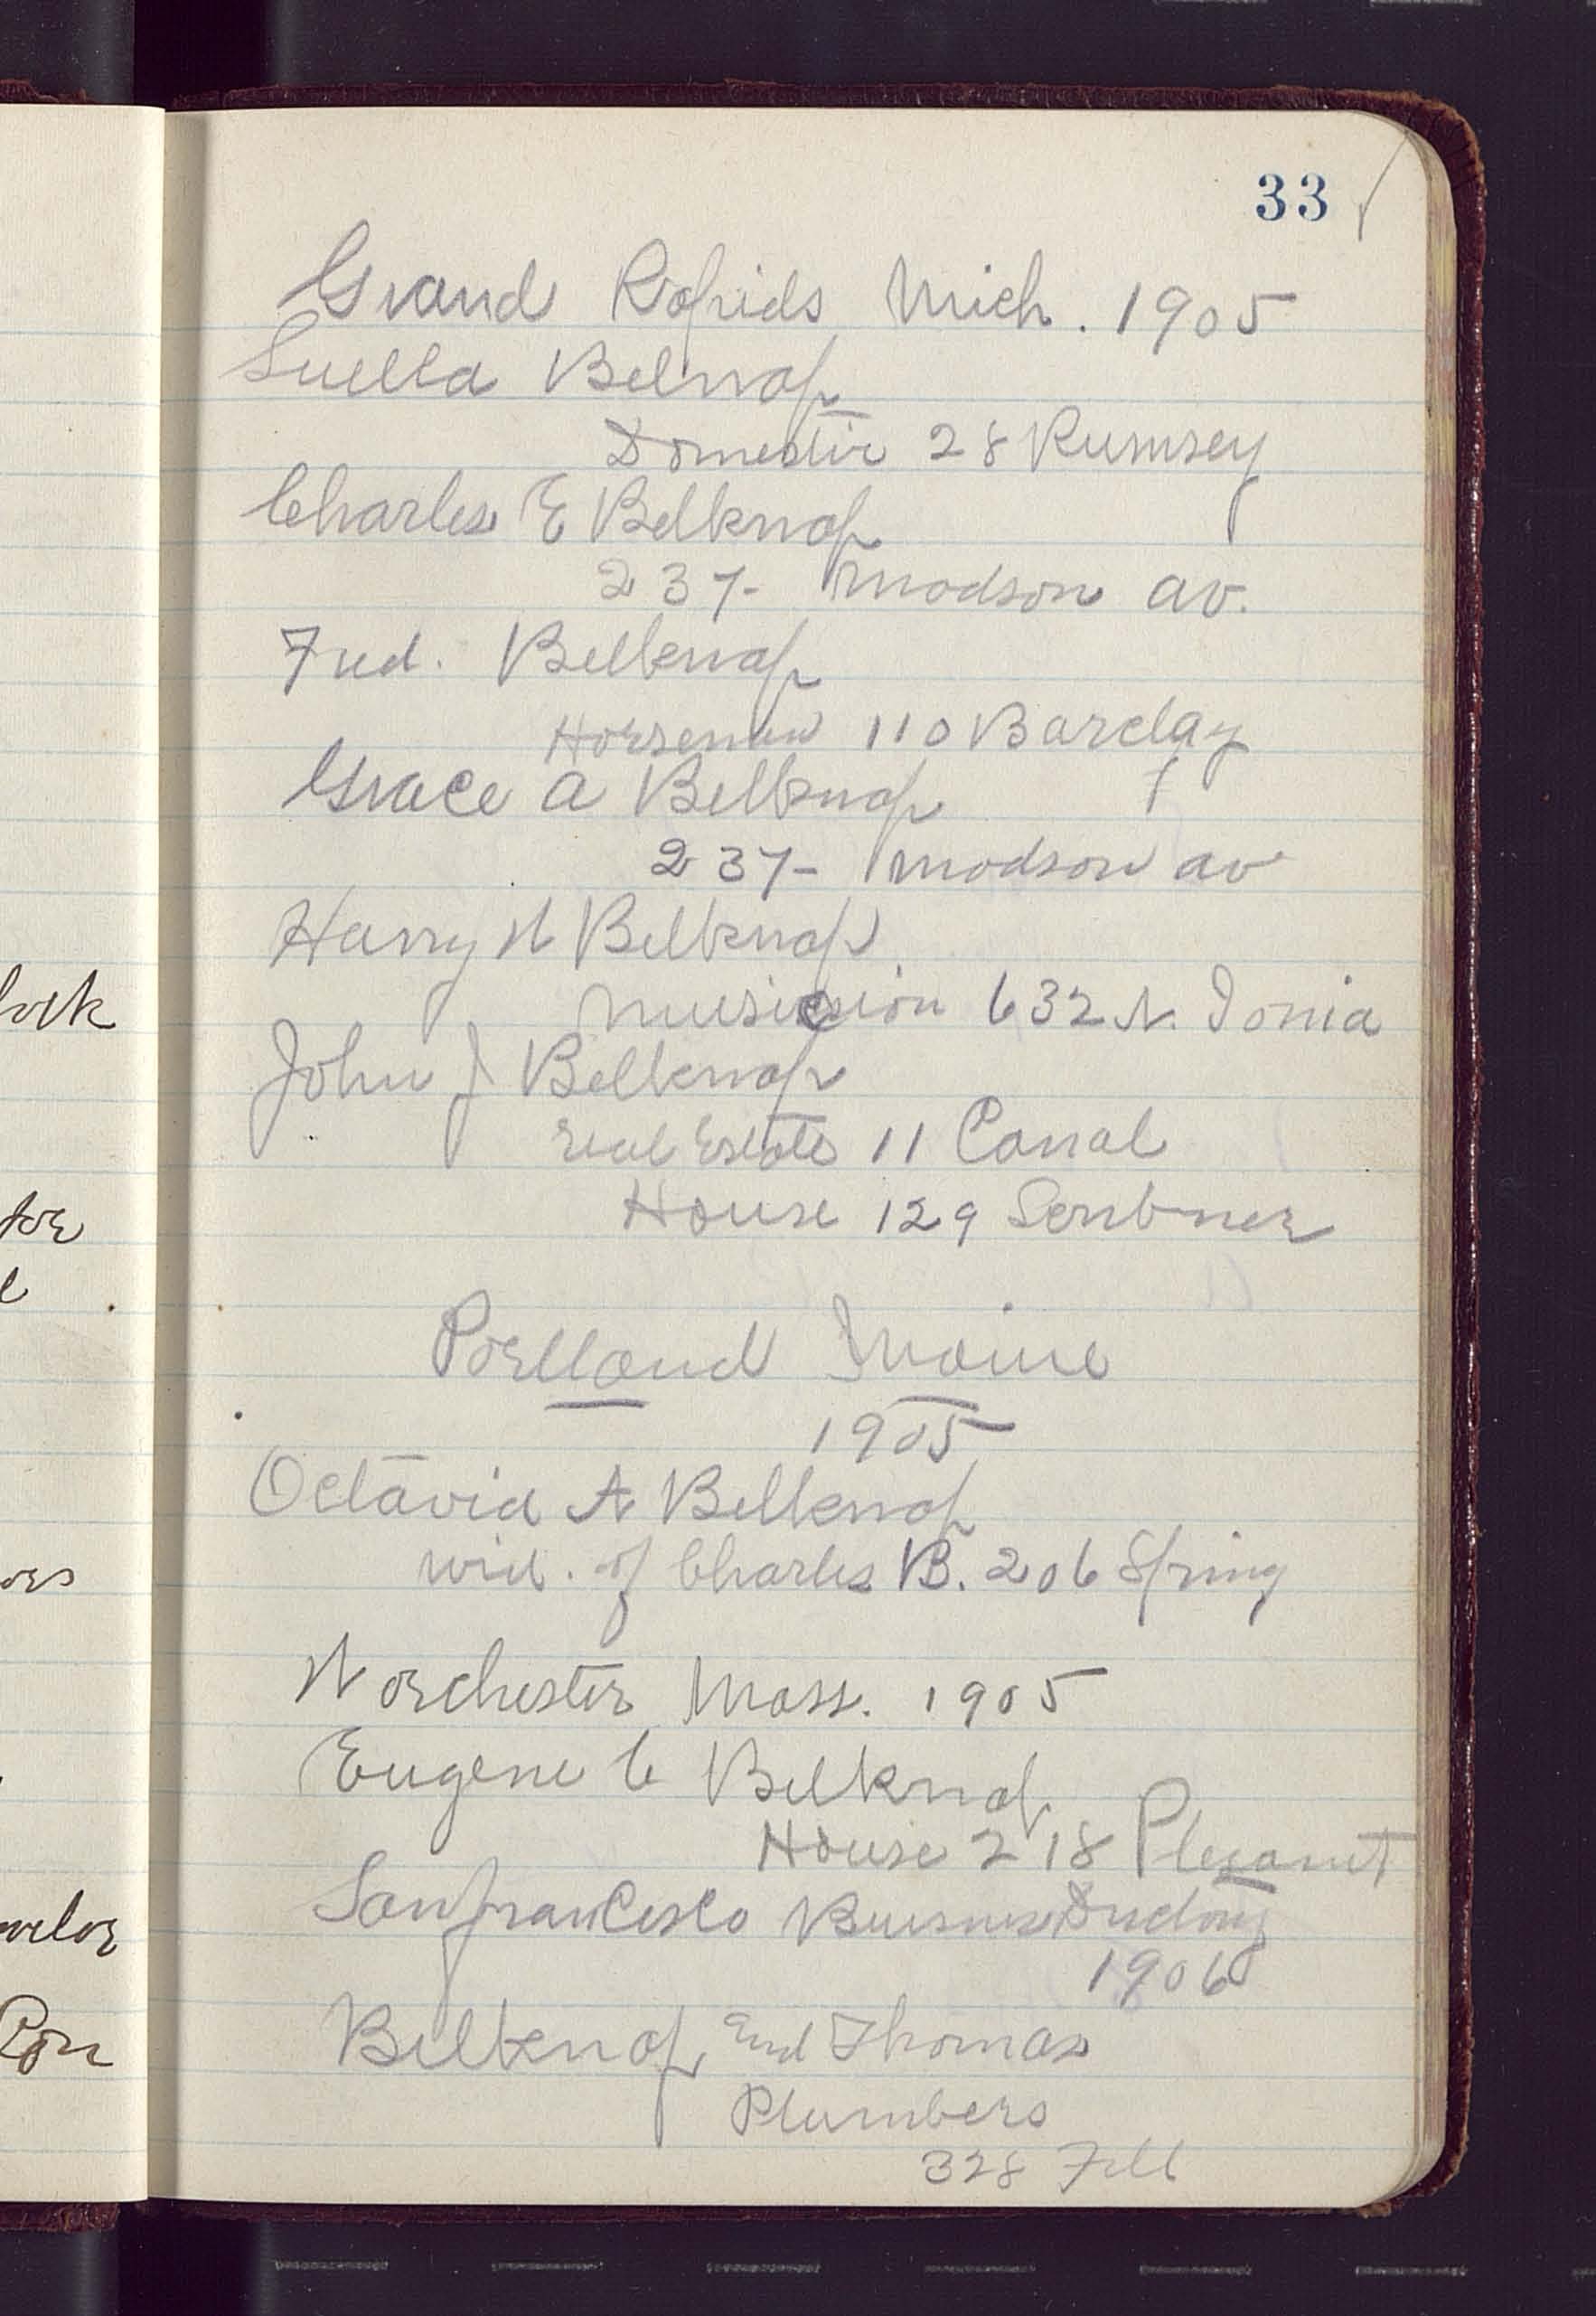 33
Grand Rapids Mich. 1905
Luella Belnap
Domestic 28 Rumsey
Charles E Belknap
237- Madson av.
Fred. Belknap
Horseman 110 Barclay
Grace A Belknap
237- Madson av
Harry W Belknap
Musician 632 N. Ionia
lock
John J Belknap
real Estate 11 Canal
House 129 Scribner
Portland Maine
1905
Octavia A Belknap
wid. of Charles B. 206 Spring
Worchester Mass. 1905
Eugene C Belknap
House 218 Plesant
Sanfrancisco Buisness
1906
Belknap and Thomas
Plumbers
328 Fell